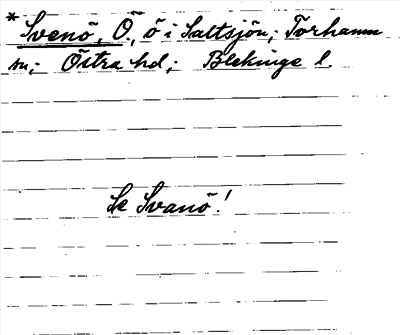 * Svenö, Ö., ö i Saltsjön; Torhamn
sn; Östra hd; Blekinge l.
Se Svanö!